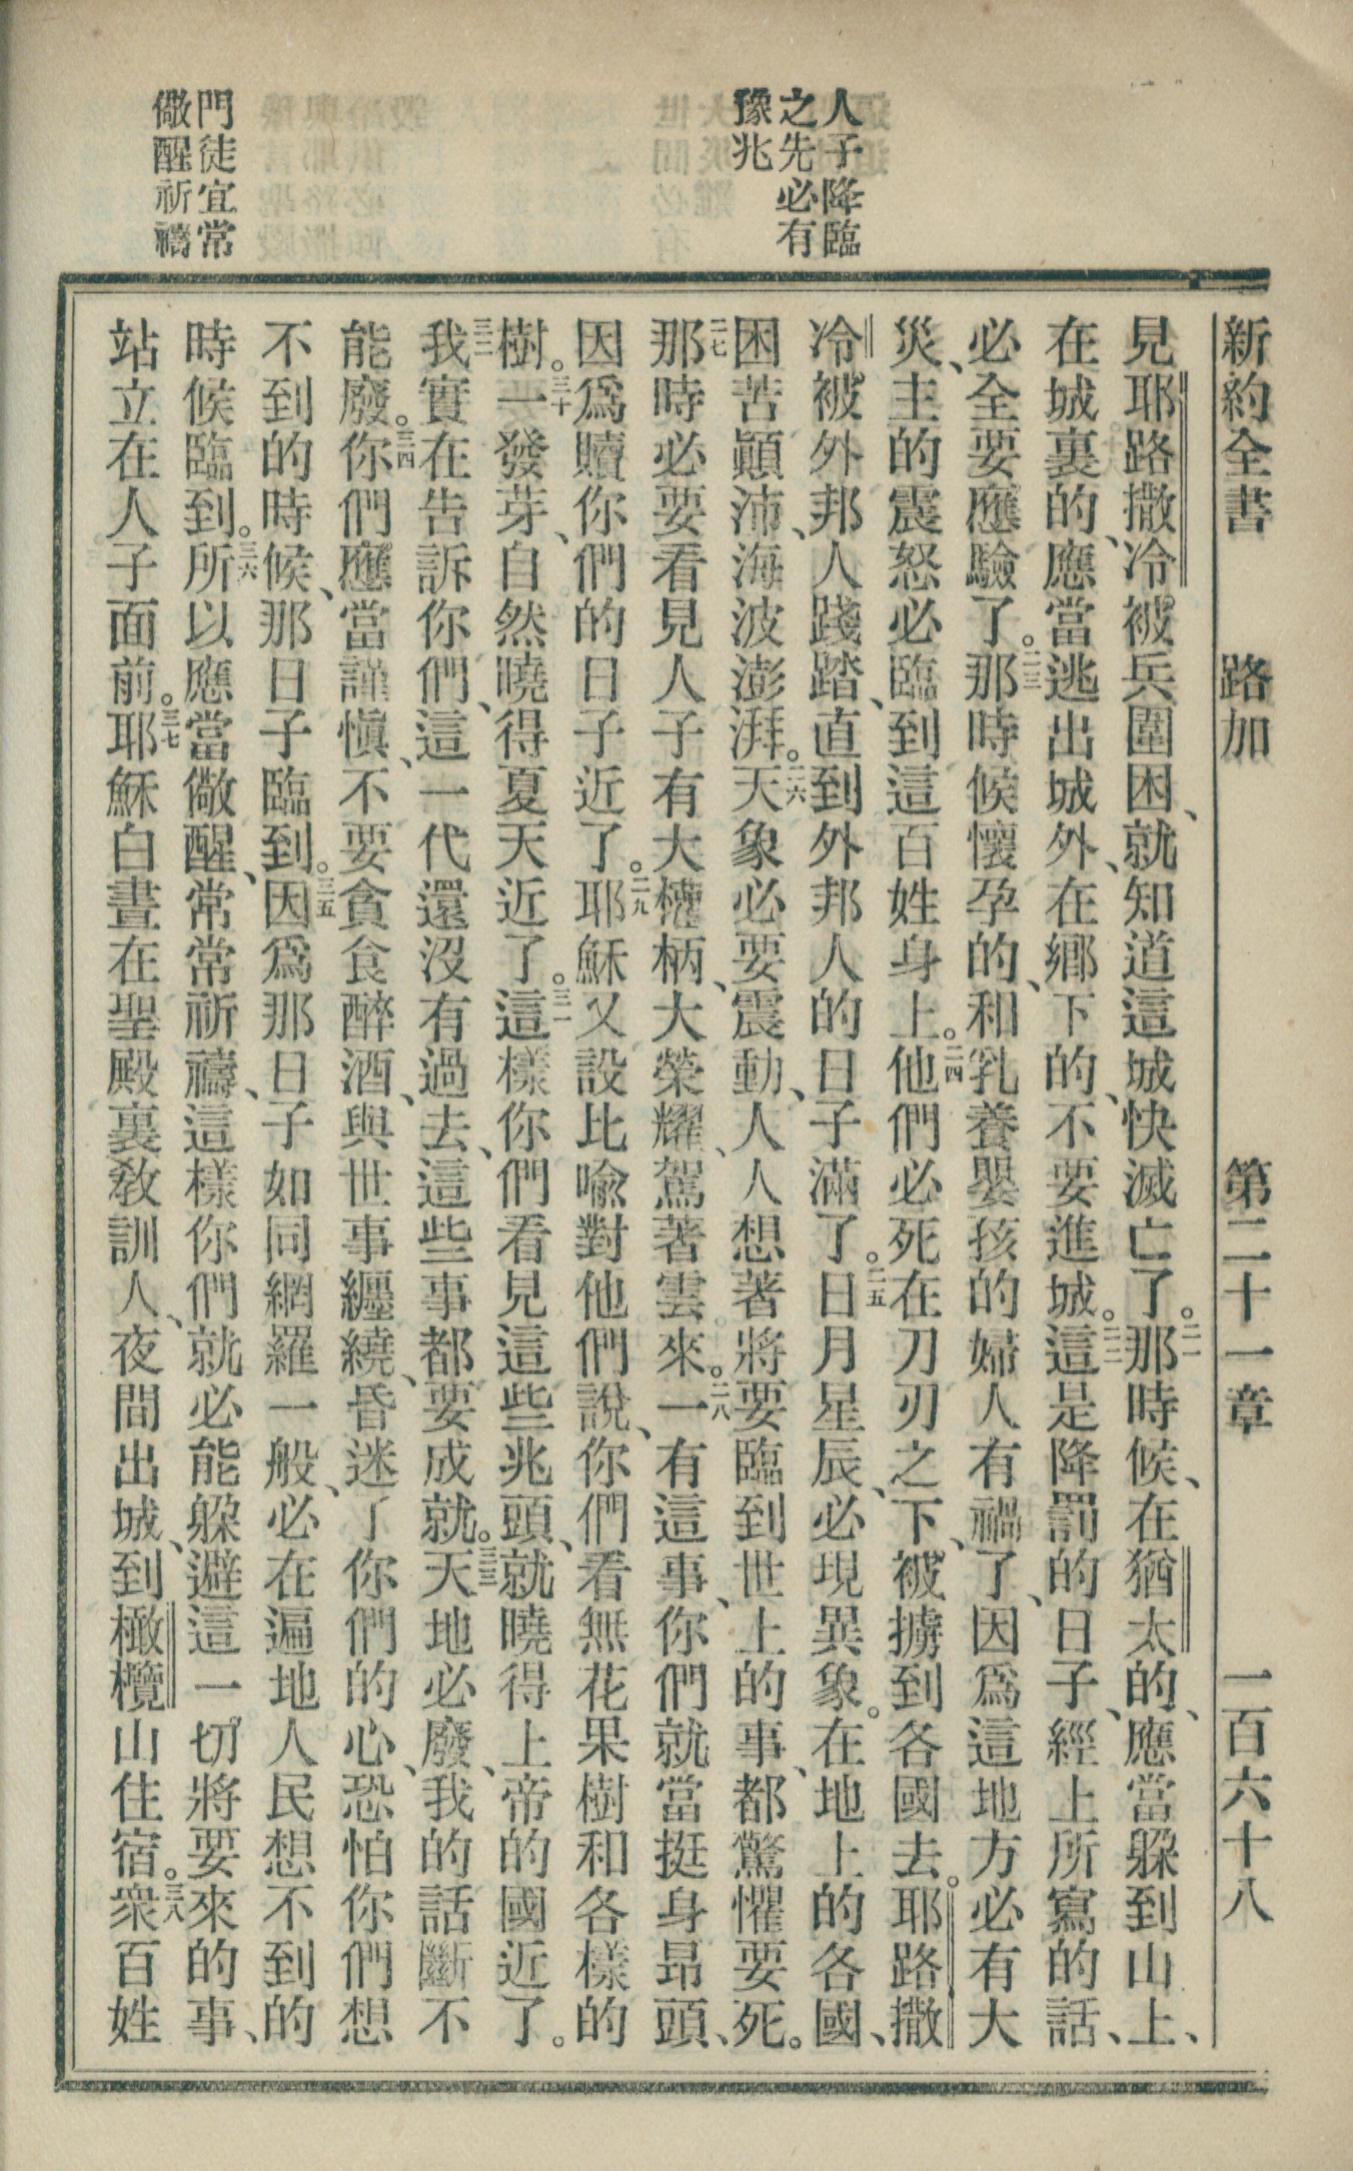 新約全書 路加 第二十一章 一百六十八
人子降臨
之先必有
豫兆
門徒宜常
儆醒祈禱
見耶路撒冷被兵圍困、就知道這城快滅亡了。二一那時候、在猶太的、應當躱到山上、
在城裏的、應當逃出城外、在鄉下的、不要進城。二二這是降罰的日子、經上所寫的話、
必全要應驗了。二三那時候懷孕的、和乳養嬰孩的婦人有禍了、因爲這地方必有大
災、主的震怒必臨到這百姓身上。二四他們必死在刀刃之下、被擄到各國去。耶路撒
冷被外邦人踐踏、直到外邦人的日子滿了。二五日月星辰、必現異象。在地上的各國、
困苦顚沛、海波澎湃。二六天象必要震動、人人想著將要臨到世上的事、都驚懼要死。
二七那時必要看見人子有大權柄、大榮耀、駕著雲來。二八一有這事、你們就當挺身昂頭、
因爲贖你們的日子近了。二九耶穌又設比喩對他們說、你們看無花果樹和各樣的
樹。三十一發芽、自然曉得夏天近了。三一這樣你們看見這些兆頭、就曉得上帝的國近了。
三二我實在告訴你們、這一代還沒有過去、這些事都要成就。三三天地必廢、我的話斷不
能廢。三四你們應當謹愼、不要貪食醉酒、與世事纏繞、昏迷了你們的心、恐怕你們想
不到的時候、那日子臨到。三五因爲那日子如同網羅一般、必在遍地人民想不到的
時候臨到。三六所以應當儆醒、常常祈禱、這樣你們就必能躱避這一切將要來的事、
站立在人子面前。三七耶穌白晝在聖殿裏敎訓人、夜間出城、到橄欖山住宿。三八衆百姓